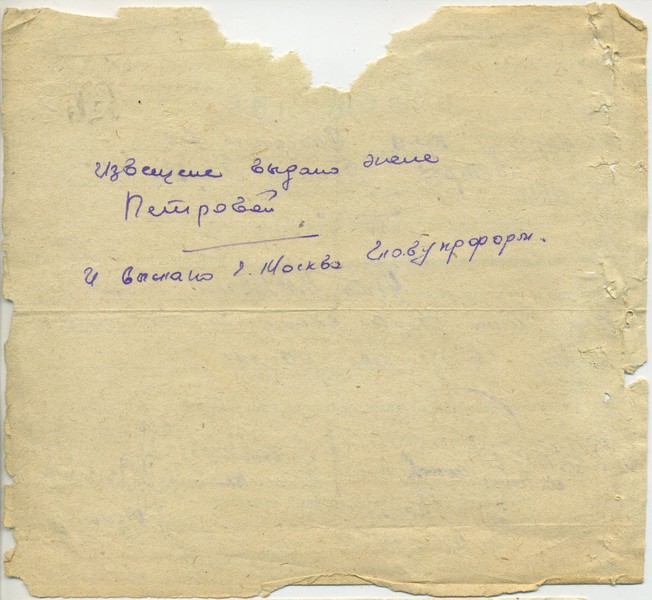 Извещение выдано жене
Петровой
И выслано г. Москва Главупрформ.